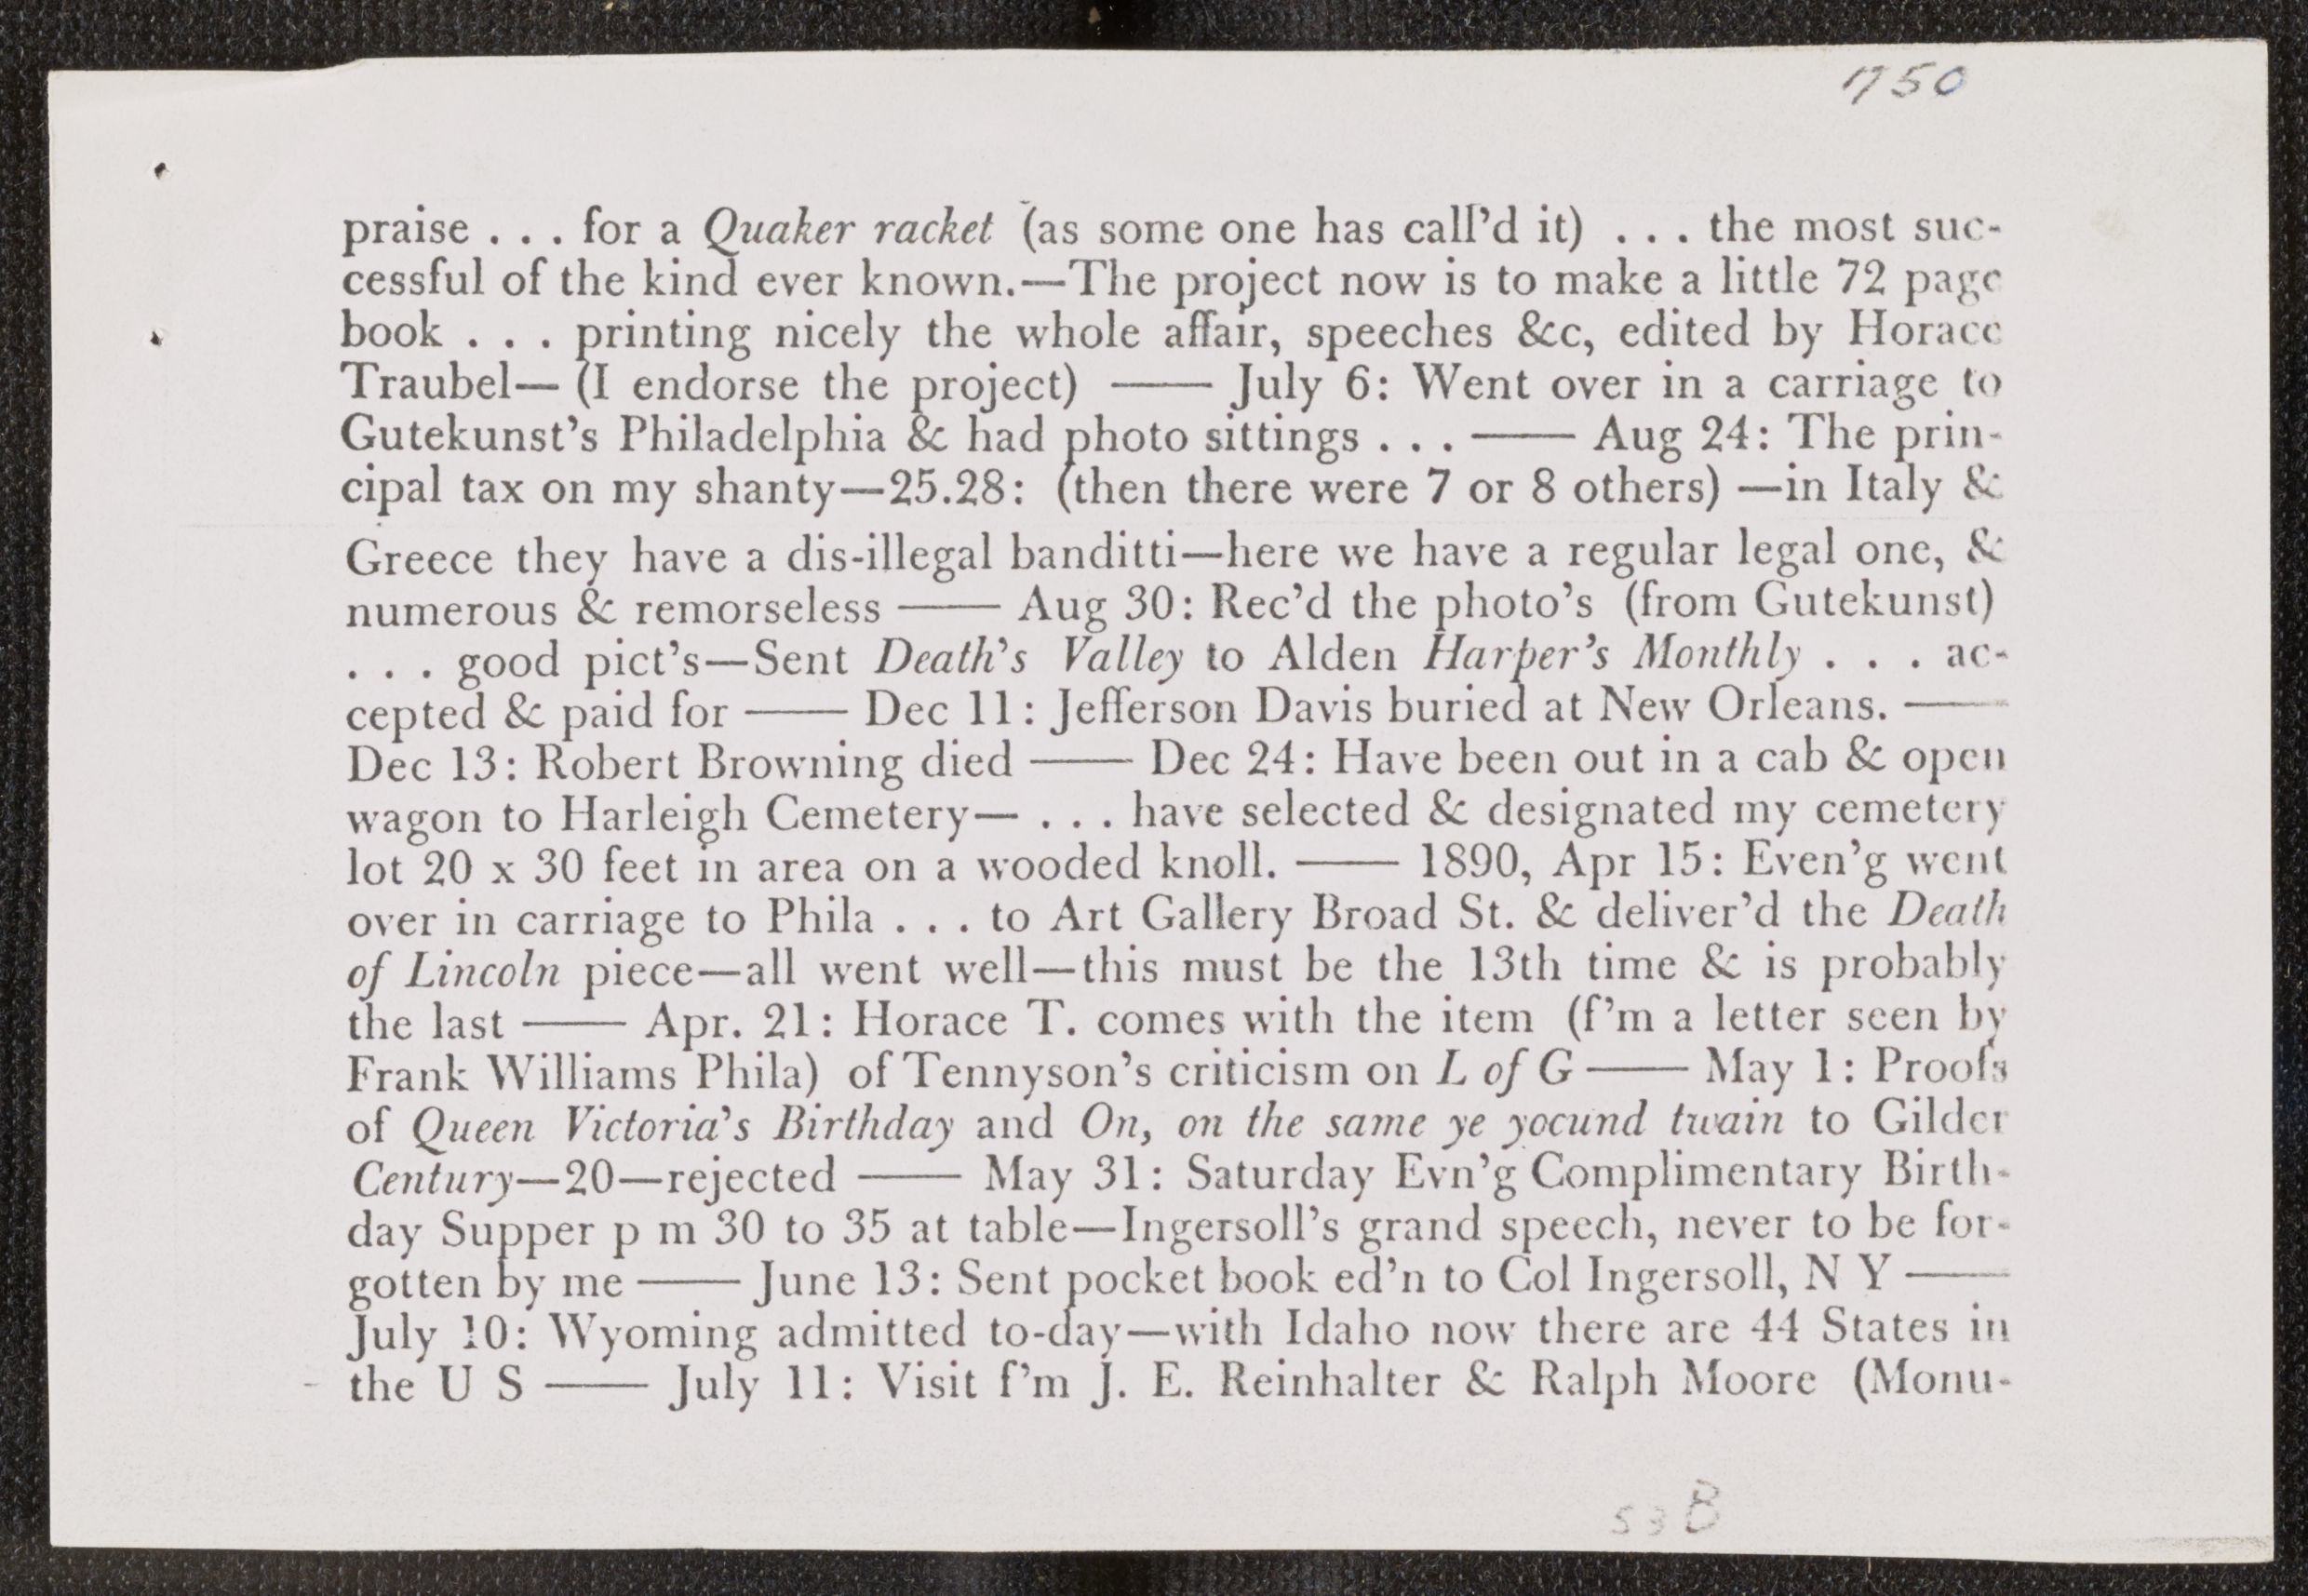 1750
praise . . . for a Quaker racket (as some one has call'd it) . . . the most suc-
cessful of the kind ever known.—The project now is to make a little 72 page
book . . . printing nicely the whole affair, speeches &c, edited by Horace
Traubel— (I endorse the project) —— July 6: Went over in a carriage to
Gutekunst's Philadelphia & had photo sittings . . . —— Aug 24: The prin-
cipal tax on my shanty—25.28: (then there were 7 or 8 others) —in Italy &
Greece they have a dis-illegal banditti—here we have a regular legal one, &
numerous & remorseless —— Aug 30: Rec'd the photo's (from Gutekunst)
. . . good pict's—Sent Death's Valley to Alden Harper's Monthly . . . ac-
cepted & paid for —— Dec 11: Jefferson Davis buried at New Orleans. ——
Dec 13: Robert Browning died —— Dec 24: Have been out in a cab & open
wagon to Harleigh Cemetery— . . . have selected & designated my cemetery
lot 20 x 30 feet in area on a wooded knoll. —— 1890, Apr 15: Even'g went
over in carriage to Phila . . . to Art Gallery Broad St. & deliver'd the Death
of Lincoln piece—all went well—this must be the 13th time & is probably
the last —— Apr. 21: Horace T. comes with the item (f'm a letter seen by
Frank Williams Phila) of Tennyson's criticism on L of G —— May 1: Proofs
of Queen Victoria's Birthday and On, on the same ye yocund twain to Gilder
Century—20—rejected —— May 31: Saturday Evn'g Complimentary Birth-
day Supper p m 30 to 35 at table—Ingersoll's grand speech, never to be for-
gotten by me —— June 13: Sent pocket book ed'n to Col Ingersoll, N Y ——
July 10: Wyoming admitted to-day—with Idaho now there are 44 States in
the U S —— July 11: Visit f'm J. E. Reinhalter & Ralph Moore (Monu-
53 B